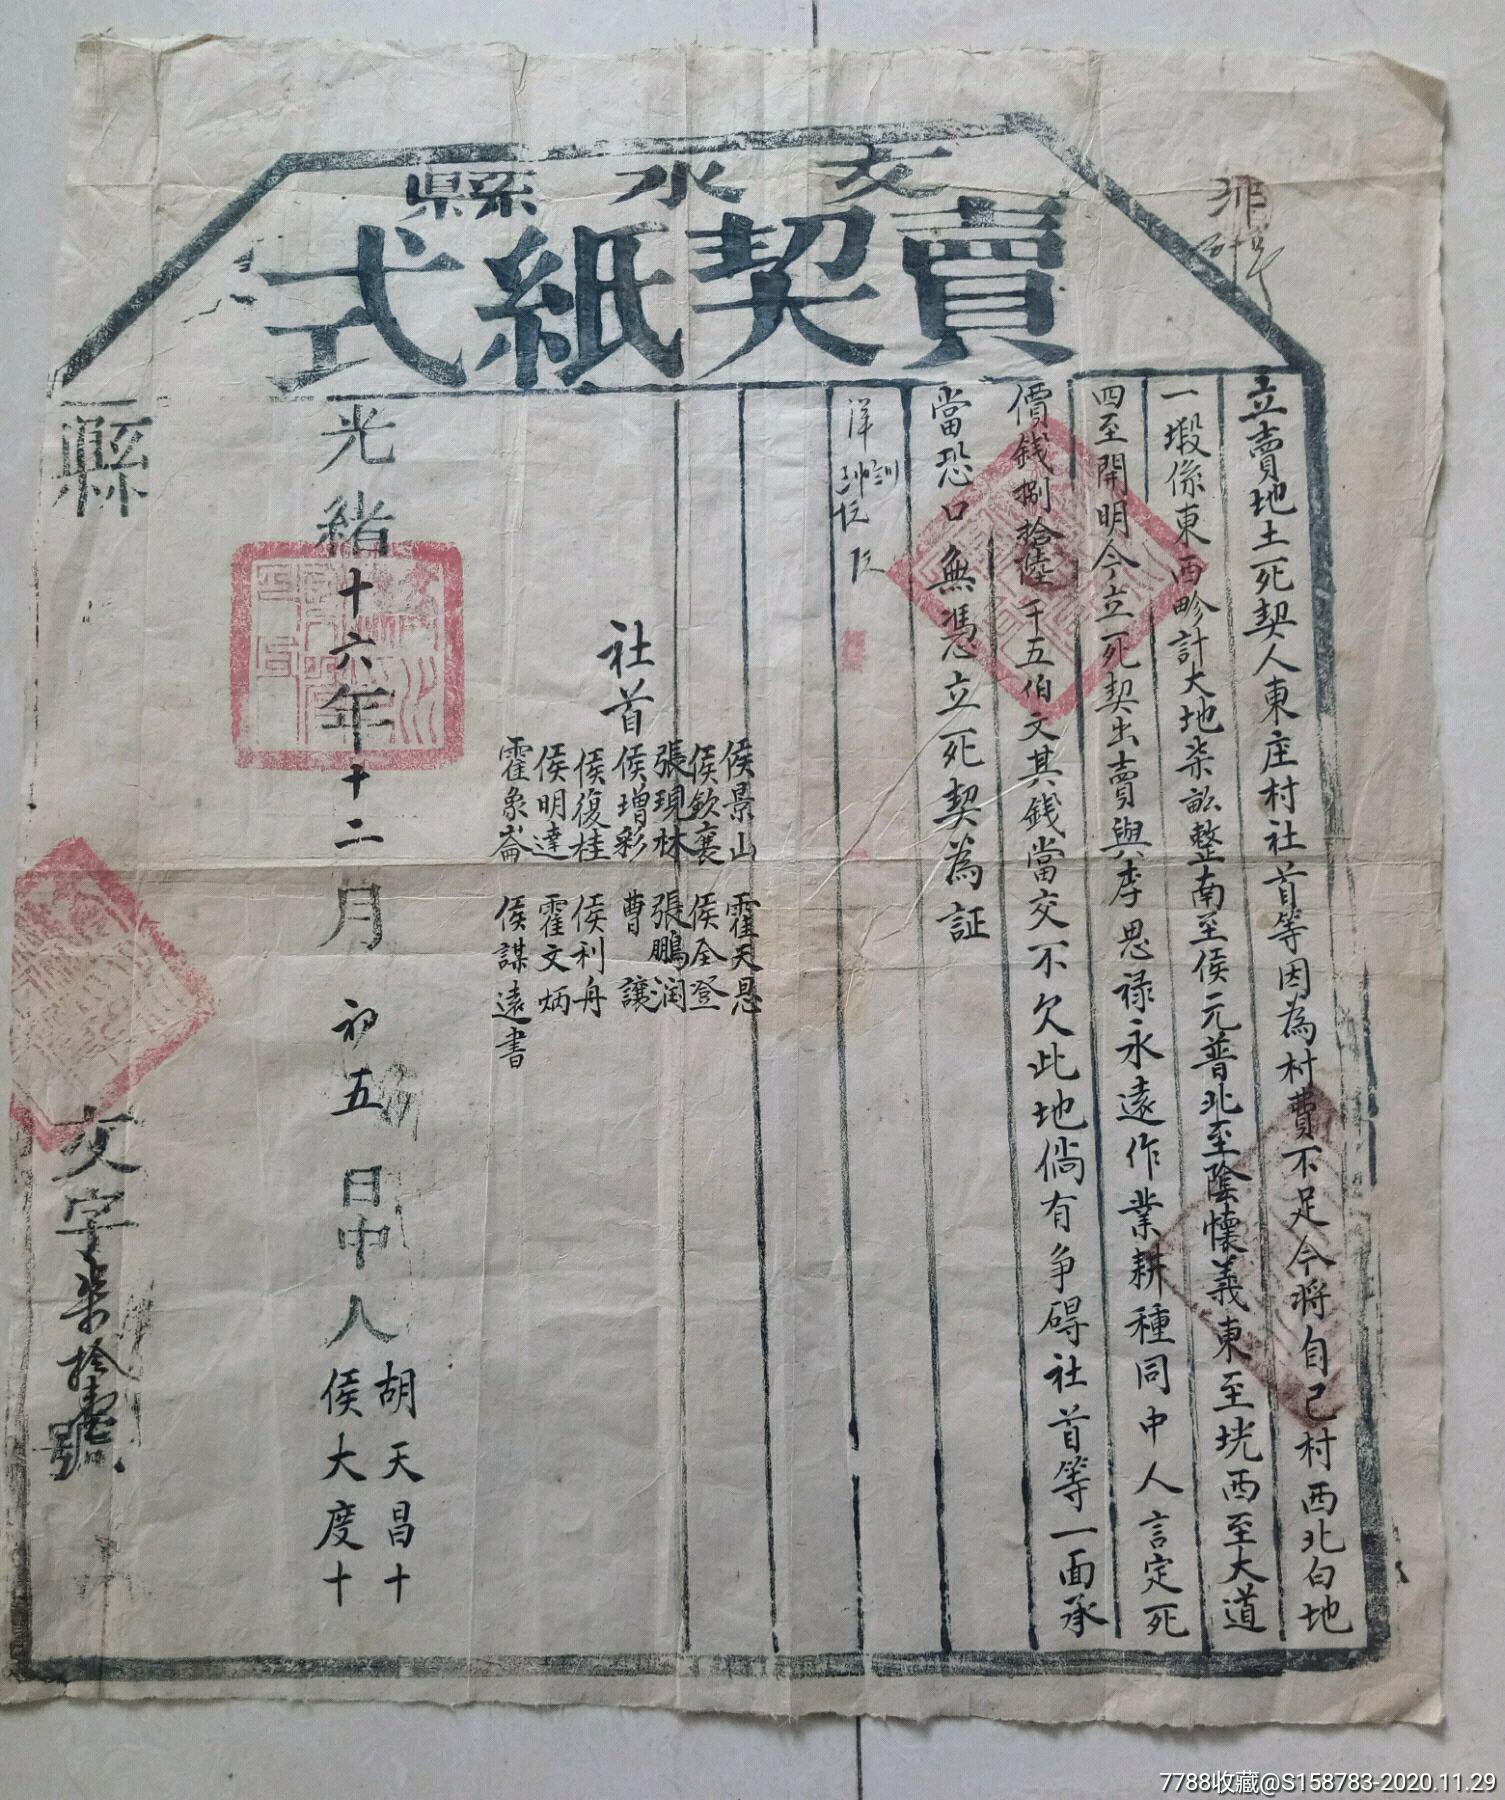 文水縣
賣契紙式
立賣地土死契人東庄村社首等因為村費不足今將自己村西北白地
一塅係東西畛計大地柒畝整南至侯元普北至陰懷義東至垙西至大道
四至開明今立死契出賣與李思禄永遠作業耕種同中人言定死
價錢捌拾陸千五伯文其錢當交不欠此地倘有争碍社首等一面承
當恐口無憑立死契為証
社首
侯景山 霍天恩
侯欽襄 侯全登
張現林 張鵬润
侯增彩 曹讓
侯復桂 侯利舟
侯明達 霍文炳
霍象崙 侯謀遠書
光緒十六年十二月初五日中人
胡天昌十
侯大度十
縣
文字柒拾號
7788收藏@S158783-2020.11.29